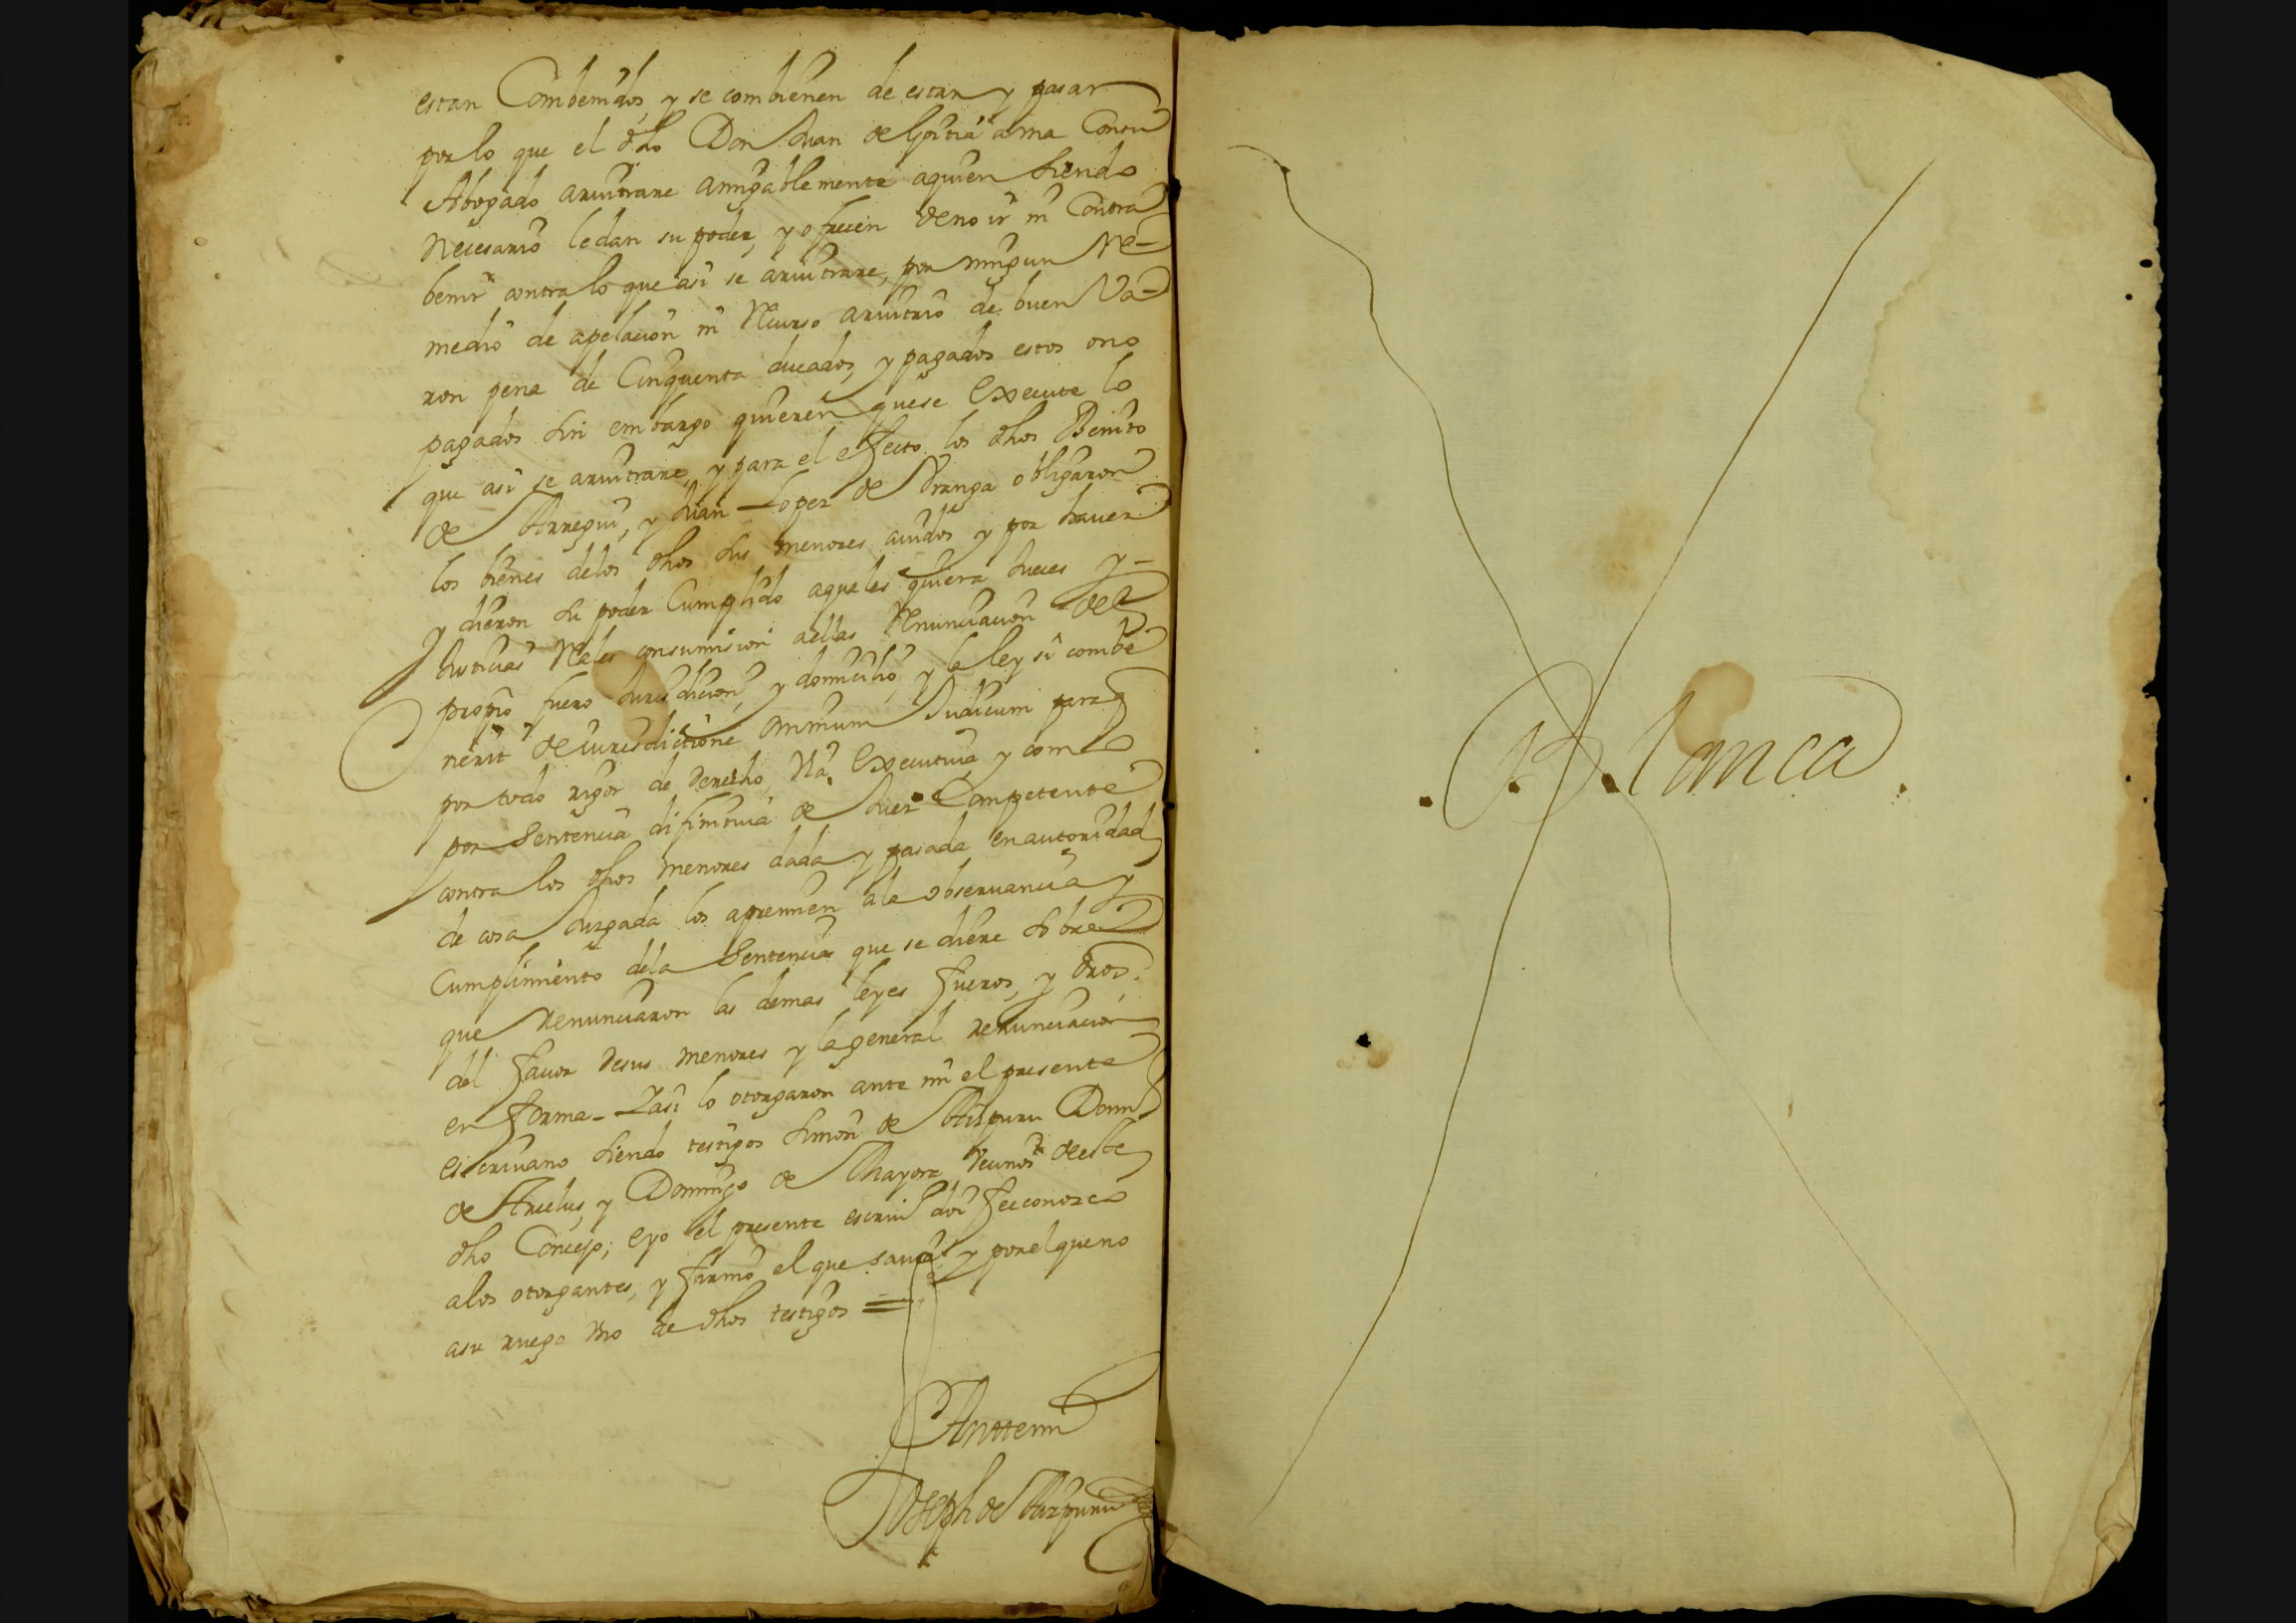 estan Combenidos, y se combienen de estar y pasar
por lo que el dho Don Juan de
Abogado aruitrare amigablemente aquien siendo
Necesario ledan su poder, y ofrecen deno ir ni Contra
benir contra lo que asi se aruitrare, por ningun Re-
medio de apelacion ni Recurso aruitrio de buen Va-
ron pena de Cinquenta ducados, y pagados estos ono
pagados sin embargo quieren quese Execute lo
que asi se aruitrare, y para el effecto los dhos Benito
de Arregui, y Juan Lopez de obligaron
los bienes delos dhos sus menores auidos y por hauer
y dieron su poder Cumplido aquales quiera Jueces y-
Justicias Rales consumision aellas Renunciacion del
propio fuero Jurisdicion, y domicilio, y la ley si combe
nerit de iurisdictione omnium Judicum para q
por todo rigor de derecho, Via Executiua, y como
por Sentencia difinitiua de Juez Competente
contra los dhos menores dada y pasada en autoridad
de cosa Juzgada los apremien ala obseruancia y
Cumplimiento dela Sentencia que se diere sobre
que Renunciaron las demas leyes fueros, y dros
del fauor desus menores y la general renunciacion
en forma - Yasi lo otorgaron ante mi el presente
escriuano siendo testigos Simon de Aizpuru Domi
de Arielus, y Domingo de Mayora Vecinos deste
dho Concejo; eyo el presente escriuo doi fee conozco
alos otorgantes, y firmo el que sauia y porel que no
asu ruego Vno de dhos testigos =
Anttemi
Joseph de Aizpuru
Blanca